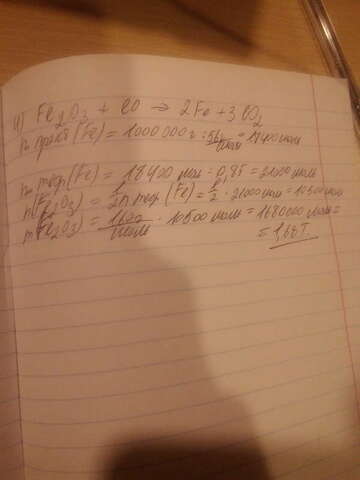 4) Fe2O3 + CO → 2Fe + 3CO2
n практ (Fe) = 1000 000 г : 56 г/моль = 17400 моль
n теор (Fe) = 18400 моль : 0,85 = 21000 моль
n(Fe2O3) = 1/2 n теор (Fe) = 1/2 · 21000 моль = 10500 моль
m(Fe2O3) = 160 г/моль · 10500 моль = 1680000 =
= 1,68 т.